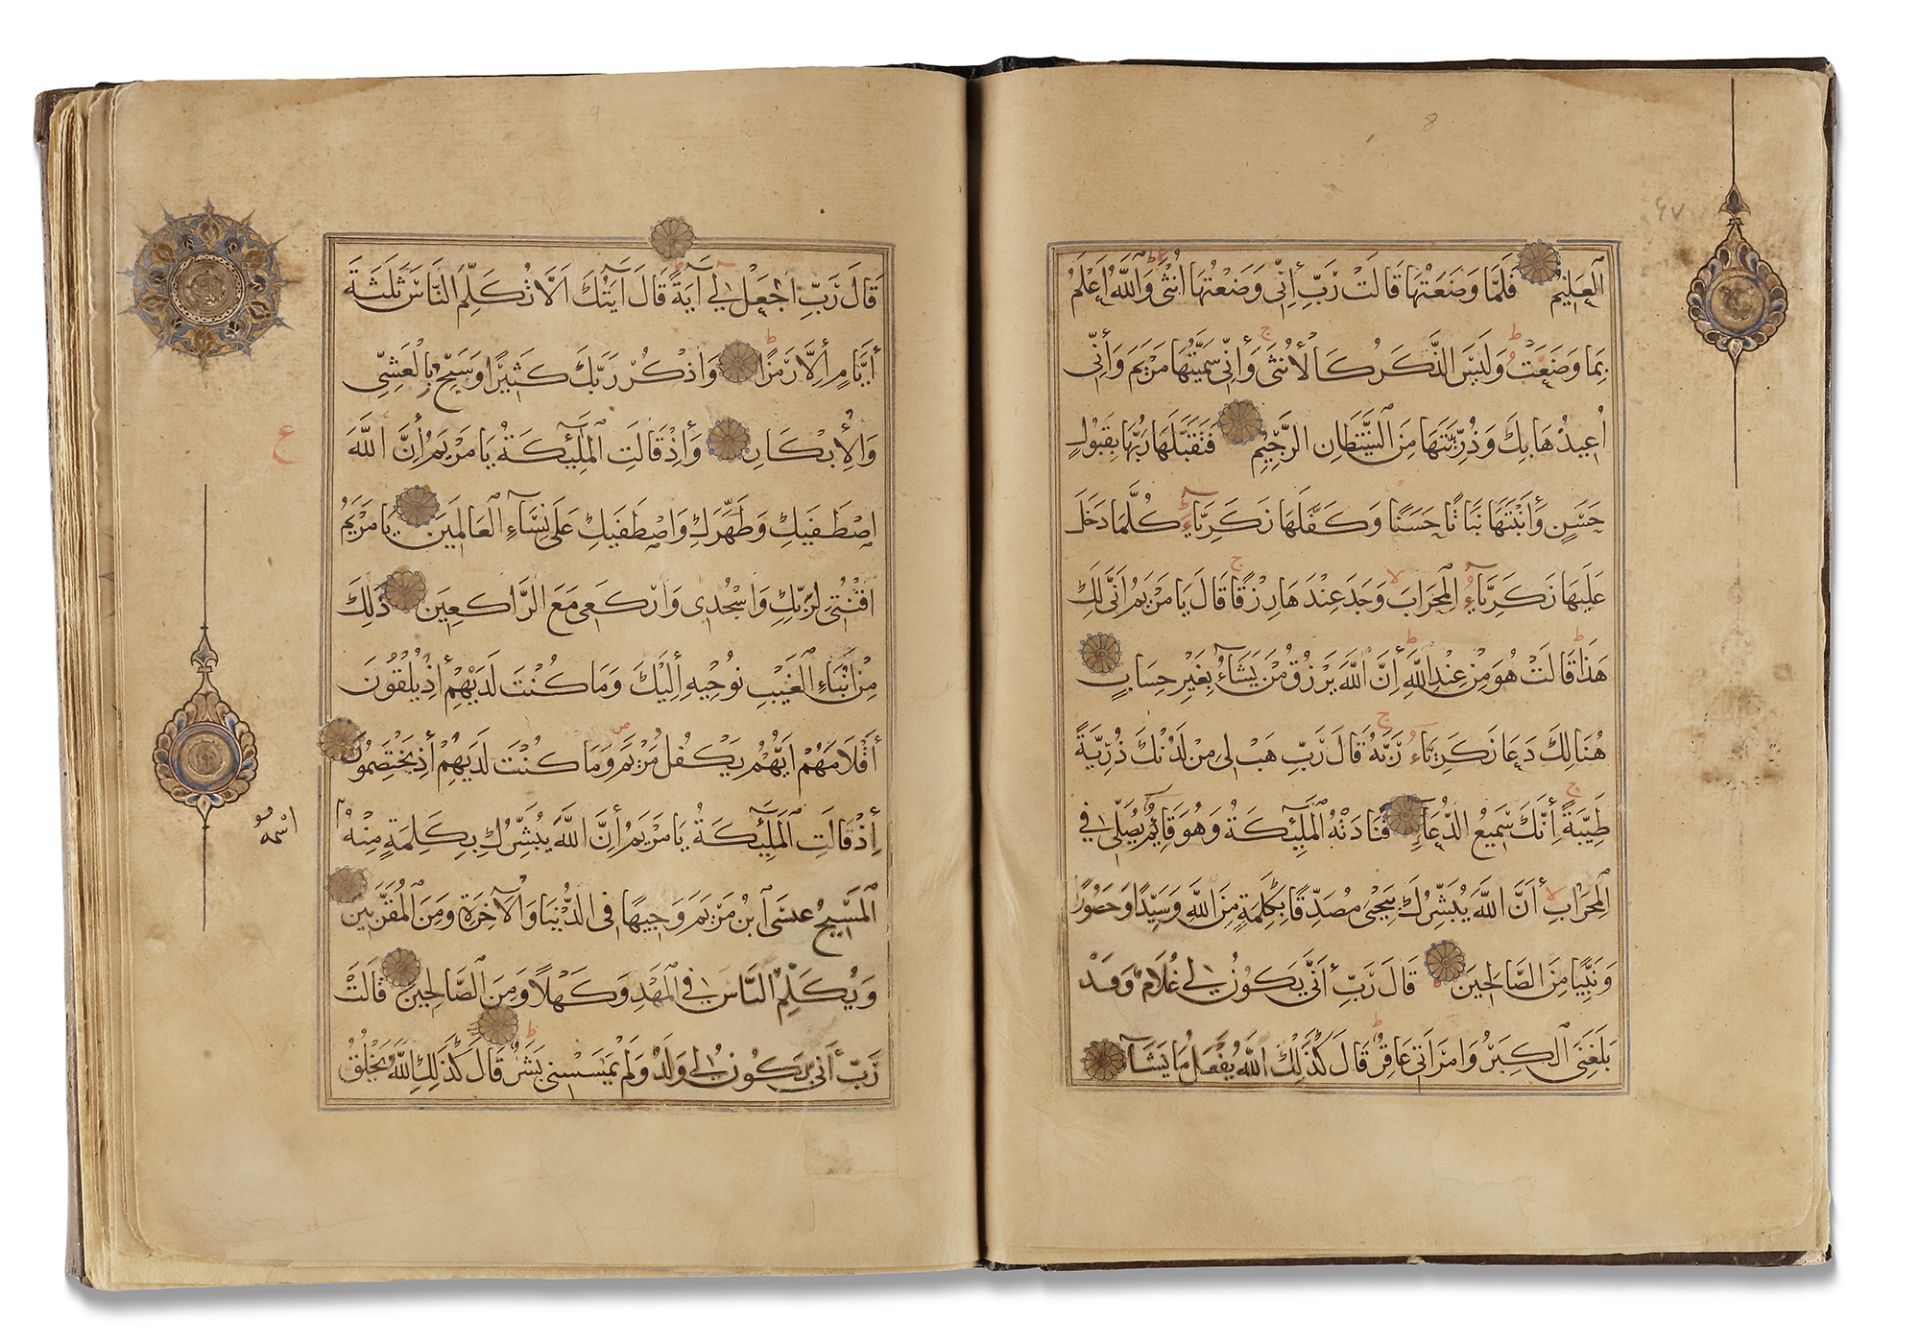 العَلِيمُ فَلَمَّا وَضَعَتْهَا قَالَتْ رَبِّ إِنِّي وَضَعْتُهَا أُنْثَى وَاللَّهُ أَعْلَمُ
بِمَا وَضَعَتْ وَلَيْسَ الذَّكَرُ كَالْأُنْثَى وَإِنِّي سَمَّيْتُهَا مَرْيَمَ وَإِنِّي
أُعِيذُهَا بِكَ وَذُرِّيَّتَهَا مِنَ الشَّيْطَانِ الرَّجِيمِ فَتَقَبَّلَهَا رَبُّهَا بِقَبُولٍ
حَسَنٍ وَأَنْبَتَهَا نَبَاتًا حَسَنًا وَكَفَّلَهَا زَكَرِيَّاءُ كُلَّمَا دَخَلَ
عَلَيْهَا زَكَرِيَّاءُ الْمِحْرَابَ وَجَدَ عِنْدَهَا رِزْقًا قَالَ يَا مَرْيَمُ أَنَّى لَكِ
هَذَا قَالَتْ هُوَ مِنْ عِنْدِ اللَّهِ إِنَّ اللَّهَ يَرْزُقُ مَنْ يَشَاءُ بِغَيْرِ حِسَابٍ
هُنَالِكَ دَعَا زَكَرِيَّاءُ رَبَّهُ قَالَ رَبِّ هَبْ لِي مِنْ لَدُنْكَ ذُرِّيَّةً
طَيِّبَةً إِنَّكَ سَمِيعُ الدُّعَاءِ فَنَادَتْهُ الْمَلَئِكَةُ وَهُوَ قَائِمٌ يُصَلِّي فِي
الْمِحْرَابِ أَنَّ اللَّهَ يُبَشِّرُكَ بِيَحْيَى مُصَدِّقًا بِكَلِمَةٍ مِنَ اللَّهِ وَسَيِّدًا وَحَصُورًا
وَنَبِيًّا مِنَ الصَّالِحِينَ قَالَ رَبِّ أَنَّى يَكُونُ لِي غُلَامٌ وَقَدْ
بَلَغَنِيَ الْكِبَرُ وَامْرَأَتِي عَاقِرٌ قَالَ كَذَلِكَ اللَّهُ يَفْعَلُ مَا يَشَاءُ
قَالَ رَبِّ اجْعَلْ لِي آيَةً قَالَ آيَتُكَ أَلَّا تُكَلِّمَ النَّاسَ ثَلَثَةَ
أَيَّامٍ إِلَّا رَمْزًا وَاذْكُرْ رَبَّكَ كَثِيرًا وَسَبِّحْ بِالْعَشِيِّ
وَالْإِبْكَارِ وَإِذْ قَالَتِ الْمَلَئِكَةُ يَا مَرْيَمُ إِنَّ اللَّهَ
اصْطَفَيكِ وَطَهَّرَكِ وَاصْطَفَيكِ عَلَى نِسَاءِ الْعَالَمِينَ يَا مَرْيَمُ
اقْنُتِي لِرَبِّكِ وَاسْجُدِي وَارْكَعِي مَعَ الرَّاكِعِينَ ذَلِكَ
مِنْ أَنْبَاءِ الْغَيْبِ نُوحِيهِ إِلَيْكَ وَمَا كُنْتَ لَدَيْهِمْ إِذْ يُلْقُونَ
أَقْلَامَهُمْ أَيُّهُمْ يَكْفُلُ مَرْيَمَ وَمَا كُنْتَ لَدَيْهِمْ إِذْ يَخْتَصِمُونَ
إِذْ قَالَتِ الْمَلَئِكَةُ يَا مَرْيَمُ إِنَّ اللَّهَ يُبَشِّرُكِ بِكَلِمَةٍ مِنْهُ
اسْمُهُ
الْمَسِيحُ عِيسَى ابْنُ مَرْيَمَ وَجِيهًا فِي الدُّنْيَا وَالْآخِرَةِ وَمِنَ الْمُقَرَّبِينَ
وَيُكَلِّمُ النَّاسَ فِي الْمَهْدِ وَكَهْلًا وَمِنَ الصَّالِحِينَ قَالَتْ
رَبِّ أَنَّى يَكُونُ لِي وَلَدٌ وَلَمْ يَمْسَسْنِي بَشَرٌ قَالَ كَذَلِكِ اللَّهُ يَخْلُقُ
ع
8
9